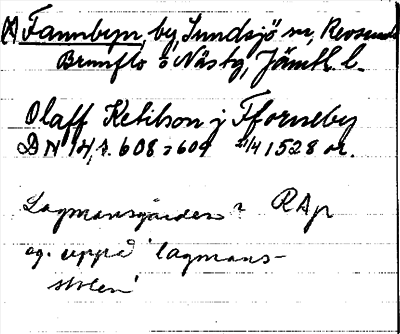 (A) Fannbyn, by, Sundsjö sn, Revsunds
Brunflo o Näs tg, Jämtl. l.
Olaff Ketilson j Fforneby
DN 14, s. 608 o 609 21/4 1528 or.
Lagmansgården? RAp
og. uppå 'lagmans-
stolen'